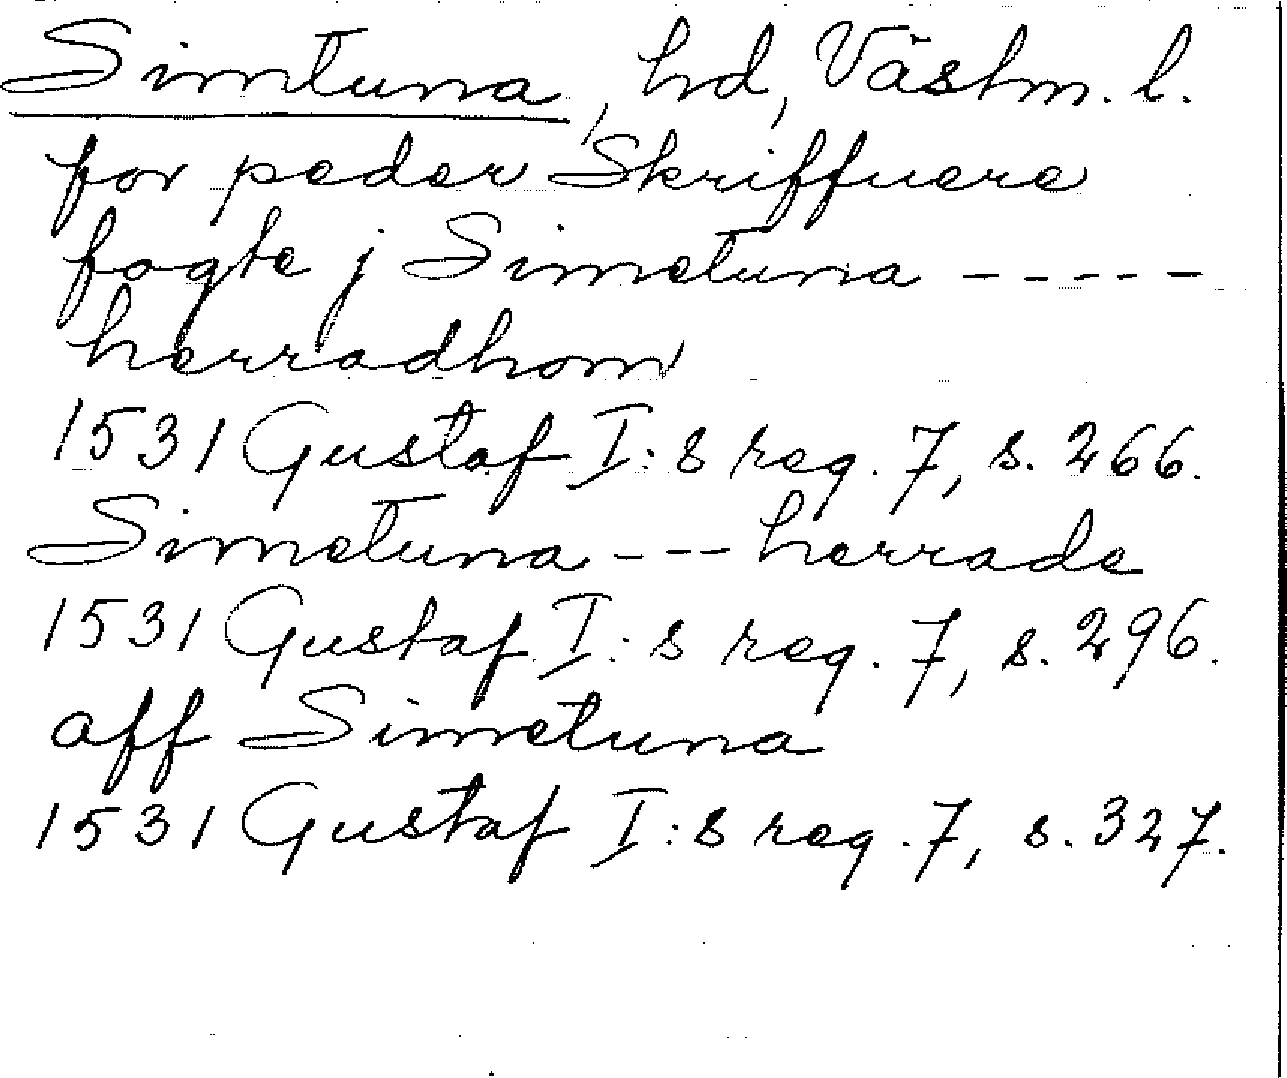 Simtuna, hd, Västm. l.
for peder Skriffuere
fogte j Simetuna -----
herradhom
1531 Gustaf I:s reg. 7, s. 266.
Simetuna --- herrade
1531 Gustaf I:s reg. 7, s. 296.
aff Simetuna
1531 Gustaf I:s reg. 7, s. 327.